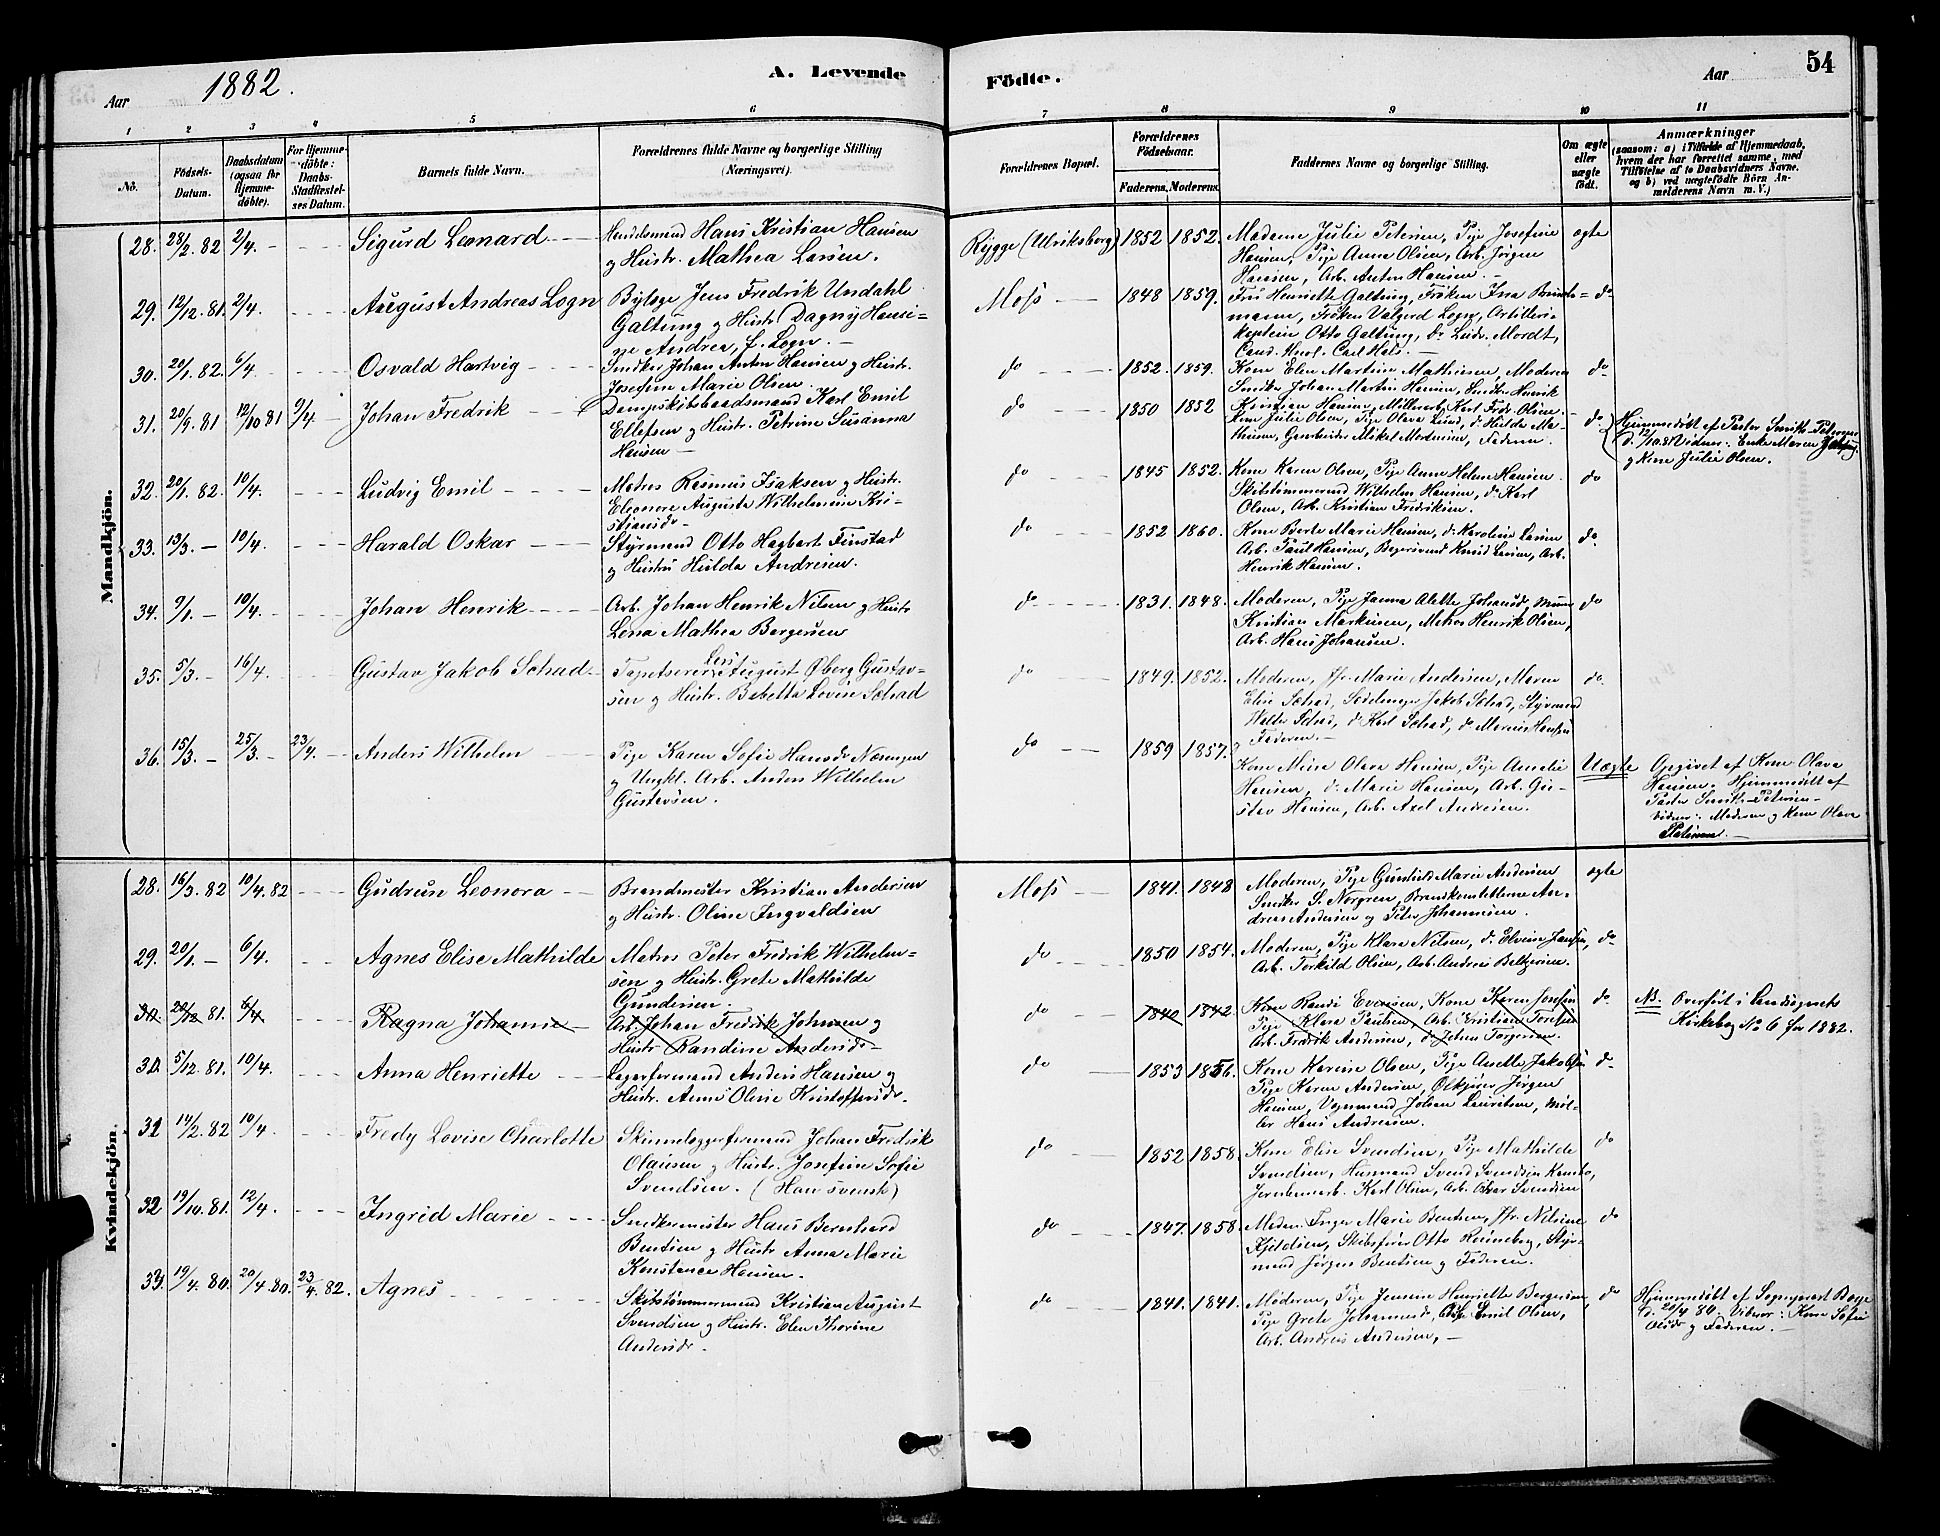 Aar 1882. A. Levende
Födte. Aar 54
1 2 3 4 5 6 7 8 9 10 11
No.
Födsels-Datum.
Daabsdatum (ogsaa for Hjemme-döbte).
For Hjemme-döbte: Daabs-Stadfæstel-ses Datum.
Barnets fulde Navn.
Forældrenes fulde Navne og borgerlige Stilling (Næringsvei).
Forældrenes Bopæl.
Forældrenes Födselsaar.
Faderens. Moderens.
Faddernes Navne og borgerlige Stilling.
Om ægte eller uægte födt.
Anmærkninger
(saasom: a) i Tilfælde af Hjemmedaab,
hvem der har forrettet samme, med
Tilföielse af to Daabsvidners Navne.
og b) ved uægtefödte Börn An-
melderens Navn m. V.)
Mandkjön.
28. 28/2. 82 2/4. Sigurd Leonard
Hans Kristian Hansen
og Hustr. Mathea Larsen.
Rygge (Ulriksborg) 1852 1852.
Madame Julie Petersen, Pige Josefine
Hansen, Pige Anna Olsen, Arb. Jørgen
Hansen, Arb. Anton Hansen.
ægte
29. 12/12. 81. 2/4. August Andreas Logn
Byfoge Jens Fredrik Undahl
Galtung og Hustr. Dagny Hansi-
ne Andrea, f. Logn.
Moss 1848 1859.
Fru Henriette Galtung, Frøken Ina
mann, Frøken Valgerd Logn, Artilleri-
kaptein Otto Galtung, do Ludv. Mordt,
Cand. Carl Hals.
do
30. 20/1. 82. 6/4. Osvald Hartvig
Snedker Johan Anton Hansen og Hustr.
Josefine Marie Olsen.
do 1852. 1859.
Kone Elen Martine Mathisen, Moderen
Snedker Johan Martin Hansen, Snedker Henrik
Kristian Hansen, Karl Fredr. Olsen.
do
31. 20/9. 81 12/10 81 9/4. Johan Fredrik
Dampskibsbaadsmand Karl Emil
Ellefsen og Hustr. Petrine Susanna
Hansen
do 1850 1852
Kone Julie Olsen, Pige Olava Lund, do Hilda Ma-
thisen, Mikal Mortensen, Faderen.
do
Hjemmedøbt af Pastor Smith-Petersen
d. 12/10. 81 Vidner: Enke Maren
og Kone Julie Olsen.
32. 20/1. 82. 10/4. Ludvig Emil
Matros Rasmus Isaksen og Hustr.
Eleonore Augusta Wilhelmine Kri-
stiansdr.
do 1845 1852.
Kone Karen Olsen, Pige Anne Helene Hansen
Skibstømmermand Wilhelm Hansen, do Karl
Olsen, Arb. Kristian Fredriksen.
do
33. 13/3. – 10/4. Harald Oskar
Styrmand Otto Hagbart Finstad
og Hustru Hulda Andresen.
do 1852 1860.
Kone Berte Marie Hansen, do Karoline Larsen
Arb. Paul Hansen, Bøgersvend Knud Larsen, Arb.
Henrik Hansen.
do
34. 9/1. – 10/4. Johan Henrik
Arb. Johan Henrik Nilsen og Hustr
Lena Mathea Børgersen
do 1831. 1848.
Moderen, Pige Janna Alette Johansd.,
Kristian Markusen, Matros Henrik Olsen,
Arb. Hans Johansen.
do
35. 5/3. – 16/4. Gustav Jakob Schad
Tapetserer August Øberg Gustav-
sen og Hustr. Babetta Lovise Schad
do 1849. 1852.
Moderen, Jfr. Marie Andersen, Maren
Elise Schad, Sadelmager Jakob Schad, Styrmand
Walter Schad, do Karl Schad, do Marius Hansen
Faderen.
do.
36. 15/3. – 25/3. – 23/4. – Anders Wilhelm
Pige Karen Sofie Hansdr. Næringen
og Ungkl. Arb. Anders Wilhelm
Gustavsen.
do 1859 1857.
Kone Olava Hansen, Pige Amalie
Hansen, do Marie Hansen, Arb. Gu-
stav Hansen, Arb. Axel Andresen.
Uægte
Opgivet af Kone Olava
Hansen. Hjemmedøbt af
Pastor Smith-Petersen
Vidner: Moderen og Kone Olava
Kvindekjön.
28. 16/3. 82 10/4. 82 Gudrun Leonora
Brandmester Kristian Andersen
og Hustr. Oline Ingvaldsen
Moss 1841. 1848
Moderen, Pige Gunhild Marie Andersen
Snedker S. Norgren, Brandkonstablerne An-
dreas Andersen og Peter Johannesen.
ægte
29. 20/1. – 6/4. Agnes Elise Mathilde
Matros Peter Fredrik Wilhelm-
sen og Hustr. Grete Mathilde
Gundersen.
do 1850 1854.
Moderen, Pige Klara Nilsen, do Elvine Jansen,
Arb. Torkild Olsen, Arb. Andreas Beltzersen.
do
30. 20/12 81. 6/4. Ragna Johanne
Arb. Johan Fredrik Johnsen og
Hustr Randine Andersdr.
do 1840 1842.
Kone Randi Evensen, Kone Karen Jensen
Pige Klara Paulsen, Arb. Kristian
Arb. Fredrik Andersen, do Johan Torgersen.
do
NB. Overført i Landsognets
Kirkebog No 6 for 1882.
30. 5/12. 81. 10/4. Anna Henriette
Lagerformand Anders Hansen og
Hustr. Anne Oline Kristoffersdr.
do 1853 1856.
Kone Karine Olsen, Pige Anette Jakobsen
Pige Karen Andersen, Ølkjører Jørgen
Hansen, Vognmand Johan Lauritsen, Møl-
ler Hans Andresen.
do
31 14/2. 82 10/4. Fredy Lovise Charlotte
Skinnelæggerformand Johan Fredrik
Olausen og Hustr. Josefine Sofie
Svendsen. (Han svensk)
do 1852 1858.
Kone Elise Svendsen, Pige Mathilde
Svendsen, Husmand Svend Svendsen
Jernbanearb. Karl Olsen, Arb. Svendsen
do
32 19/10. 81. 12/4. Ingrid Marie
Snedkermester Hans Bernhard
Bentsen og Hustr Anna Marie
Konstance Hansen.
do 1847. 1858.
Madam Inger Marie Bentsen, Jfr. Nilsine
Kjeldsen, Skibsfører Otto Styr-
mand Jørgen Bentsen og Faderen.
do
33. 19/4. 80. 20/4. 80. 23/4. 82. Agnes
Skibstømmermand Kristian August
Svendsen og Hustr. Elen Thorine
Andersdr.
do 1841. 1841.
Moderen, Pige Jensine Henriette Børgesen,
Pige Grete Johannesd, Emil Olsen,
Arb. Andreas Andersen,
do
Hjemmedøbt af Sognepræst
d. 20/4 80. Vidner: Kone Sofie
Olsdr og Faderen.